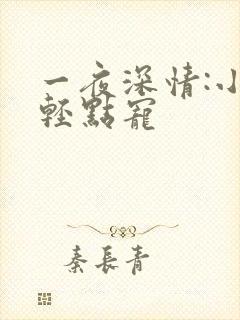 一夜深情:小
轻點寵
秦長青